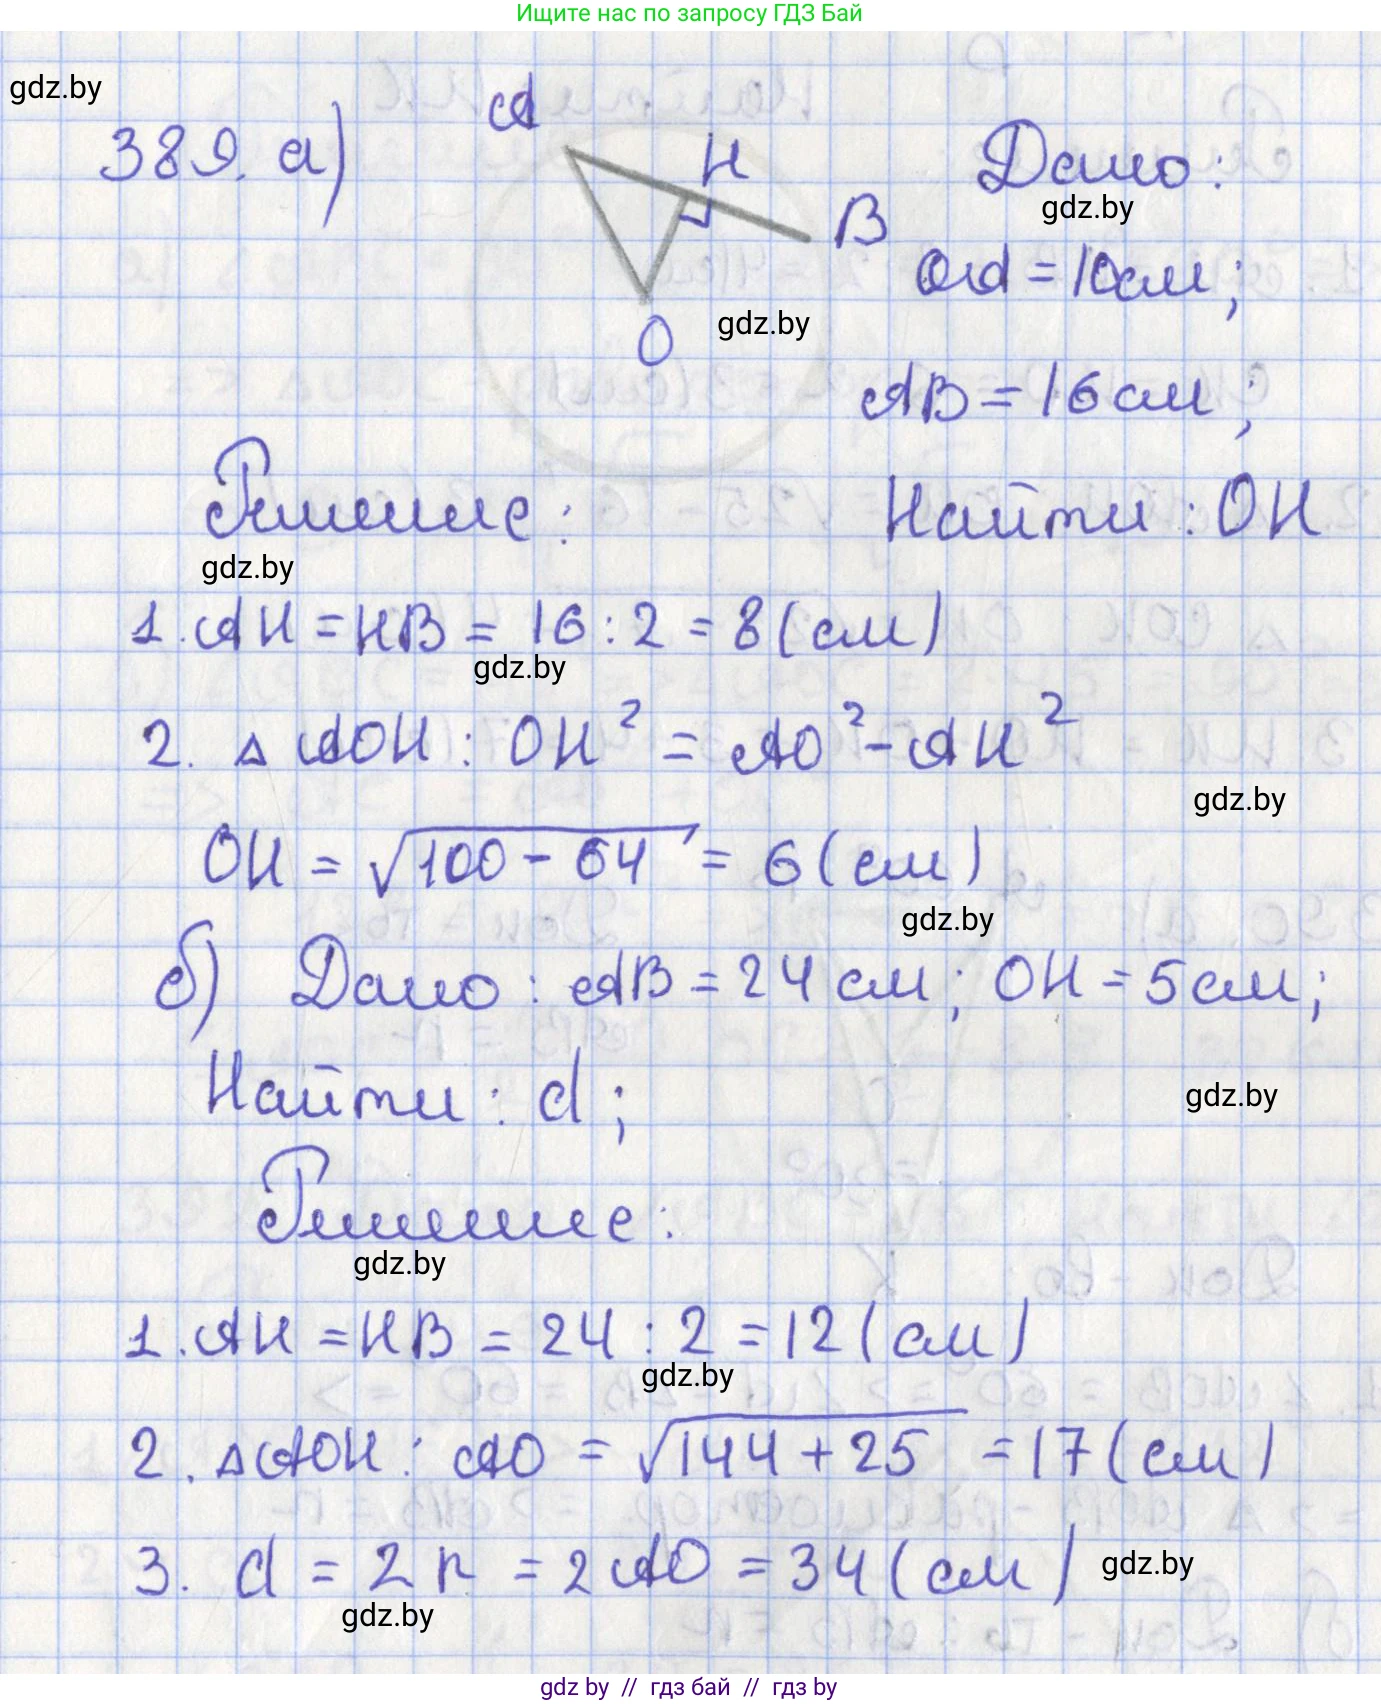 Ищите нас по запросу ГДЗ Бай
gdz.by
389. а)
A
H
B
O
gdz.by
Дано:
gdz.by
OA = 10см;
AB = 16см;
Решение:
Найти: OH
gdz.by
1. AH = HB = 16 : 2 = 8 (см)
gdz.by
2. △ AOH : OH² = AO² - AH²
gdz.by
OH = √100 - 64 = 6 (см)
gdz.by
б) Дано: AB = 24 см; OH = 5см;
Найти: d;
gdz.by
Решение:
gdz.by
1. AH = HB = 24 : 2 = 12 (см)
gdz.by
2. △AOH : AO = √144 + 25 = 17 (см)
3. d = 2r = 2AO = 34 (см)
gdz.by
gdz.by
gdz by // гдз бай // гдз by